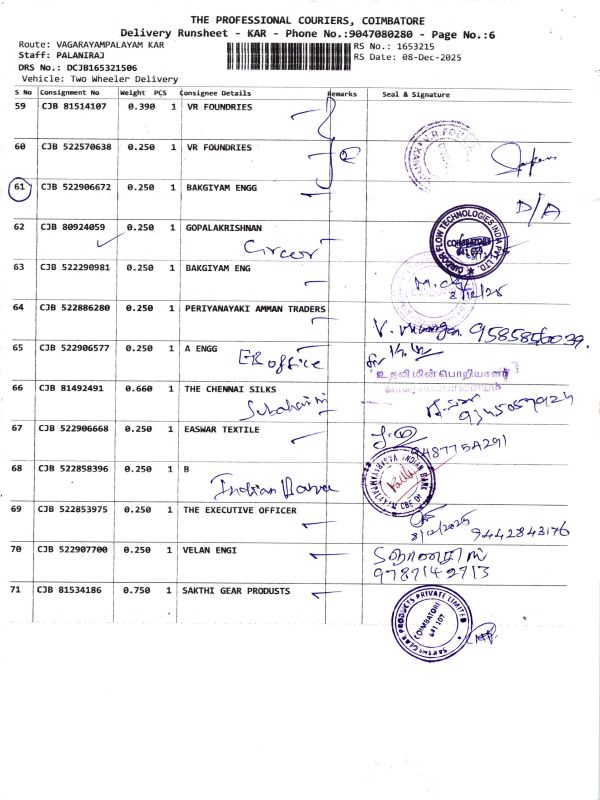 THE PROFESSIONAL COURIERS, COIMBATORE
Delivery Runsheet - KAR - Phone No.:9047080280 - Page No.:6
Route: VAGARAYAMPALAYAM KAR
RS No.: 1653215
Staff: PALANIRAJ
RS Date: 08-Dec-2025
DRS No.: DCJB165321506
Vehicle: Two Wheeler Delivery
S No Consignment No Weight PCS Consignee Details Remarks Seal & Signature
59 CJB 81514107 0.390 1 VR FOUNDRIES
60 CJB 522570638 0.250 1 VR FOUNDRIES
61 CJB 522906672 0.250 1 BAKGIYAM ENGG
D/A
62 CJB 80924059 0.250 1 GOPALAKRISHNAN
CIRCOR FLOW TECHNOLOGIES INDIA PVT. LTD.
COIMBATORE
641 659
63 CJB 522290981 0.250 1 BAKGIYAM ENG
8/12/25
64 CJB 522886280 0.250 1 PERIYANAYAKI AMMAN TRADERS
65 CJB 522906577 0.250 1 A ENGG
EB office
உதவி மின் பொறியாளர்
66 CJB 81492491 0.660 1 THE CHENNAI SILKS
9345057924
67 CJB 522906668 0.250 1 EASWAR TEXTILE
68 CJB 522858396 0.250 1 B
INDIAN BANK
69 CJB 522853975 0.250 1 THE EXECUTIVE OFFICER
8/12/2025
9442843176
70 CJB 522907700 0.250 1 VELAN ENGI
9787142713
71 CJB 81534186 0.750 1 SAKTHI GEAR PRODUSTS
SAKTHI GEAR PRODUCTS PRIVATE LIMITED
COIMBATORE
641 107